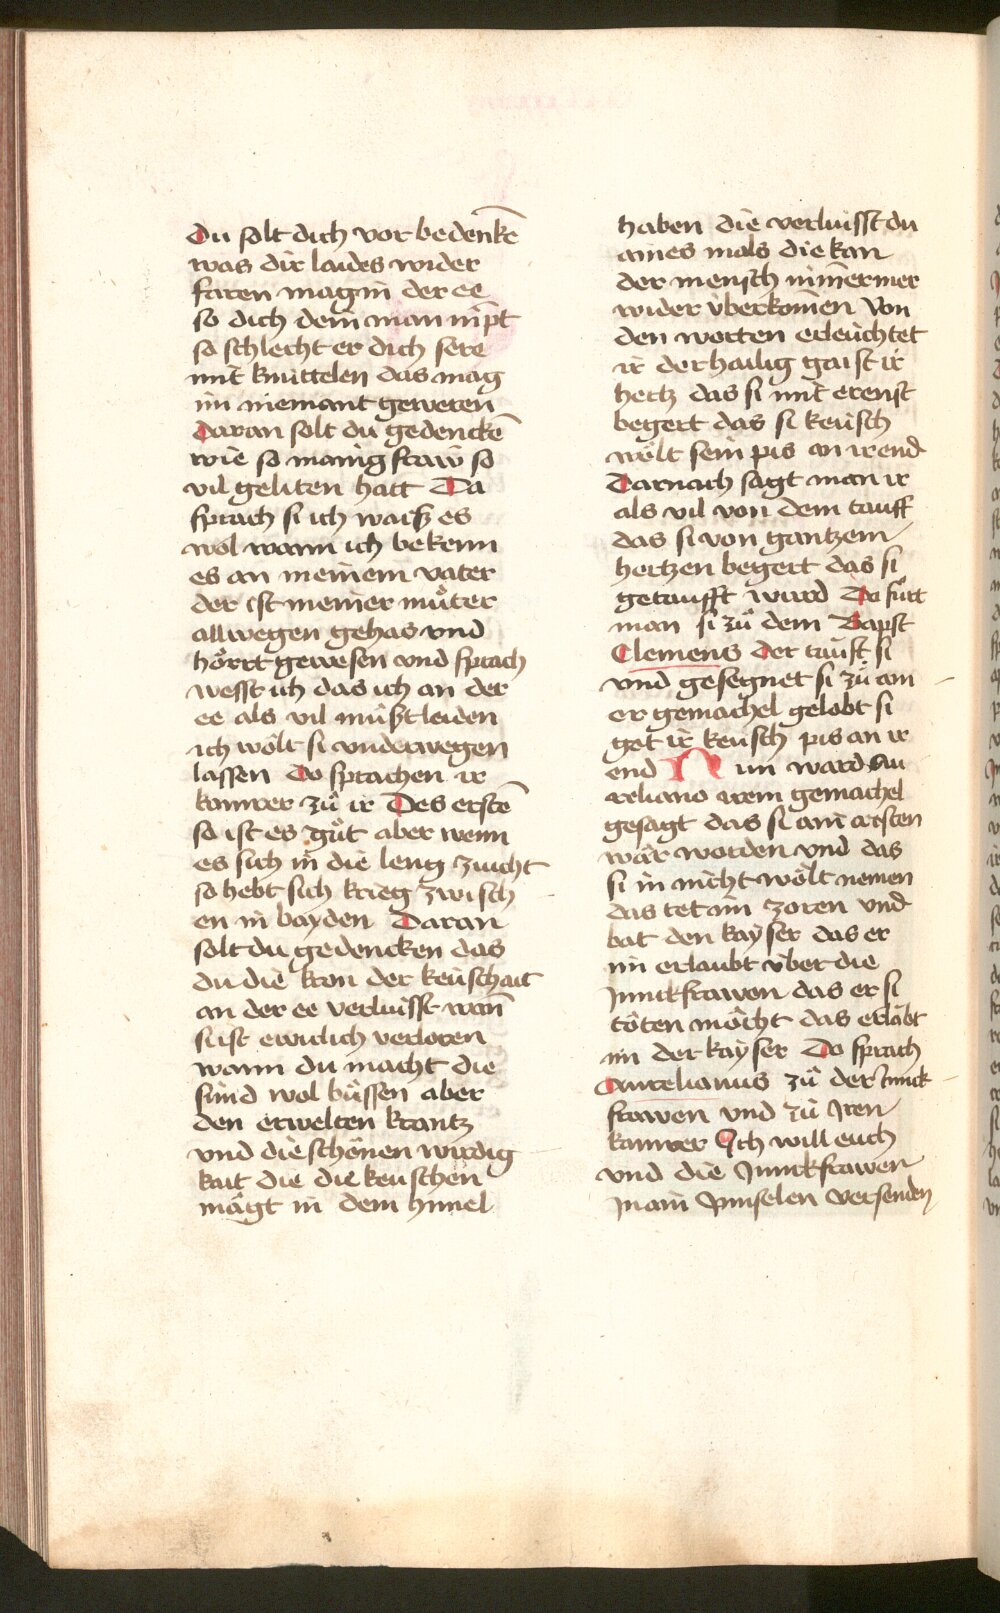 Du solt dich vor bedenkē
was dir laides wider
faren mag in der ee
so dich dein man nīpt
so schlecht er dich sere
mit knüttelen das mag
im niemant geweren
Daran solt du gedenckē
wie so manig fraw so
vil geliten hatt Da
sprach si ich waisz es
wol wann ich bekenn
es an meinem vater
der ist meiner mů̈ter
allwegen gehas vnd
hörrt gewesen vnd sprach
wesst ich das ich an der
ee als vil müszt leiden
ich wölt si vnderwegen
lassen Do sprachen ir
kamrer zů ir Des erstē
so ist es gůt aber wenn
es sich in die leng zuicht
so hebt sich krieg zwisch
en in bayden Daran
solt du gedencken das
du die kron der keüschait
an der ee verluisst wan̄
si ist ewiclich verloren
wann du macht die
sünd wol büssen aber
den erwelten krantz
vnd die schönen wirdig
kait die die keuschen
mägt in dem himel
haben die verluisst du
aines mals die kan
der mensch nim̄ermer
wider v̈berkom̄en Von
den worten erleüchtet
ir der hailig gaist ir
hertz das si mit ernst
begert das si keüsch
wölt sein pis an ir end
Darnach sagt man ir
als vil von dem tauff
das si von gantzem
hertzen begert das si
getaufft wurd Do fürt
man si zů dem Bapst
Clemens der tauft si
vnd gesegnet si zů ain
er gemachel gelobt si
got ir keusch pis an ir
end Nun ward Au
reliano irem gemachel
gesagt das si ain cristen
wär worden vnd das
si in nicht wölt nemen
das tet im zoren vnd
bat den kayser das er
im erlaubt v̈ber die
Junckfrawen das er si
töten möcht das erlabt
im der kayser Do sprach
Aurelianus zů der Junck
frawen vnd zů Iren
kamrer Ich will euch
vnd die Junckfrawen
in ain Punselen versenden